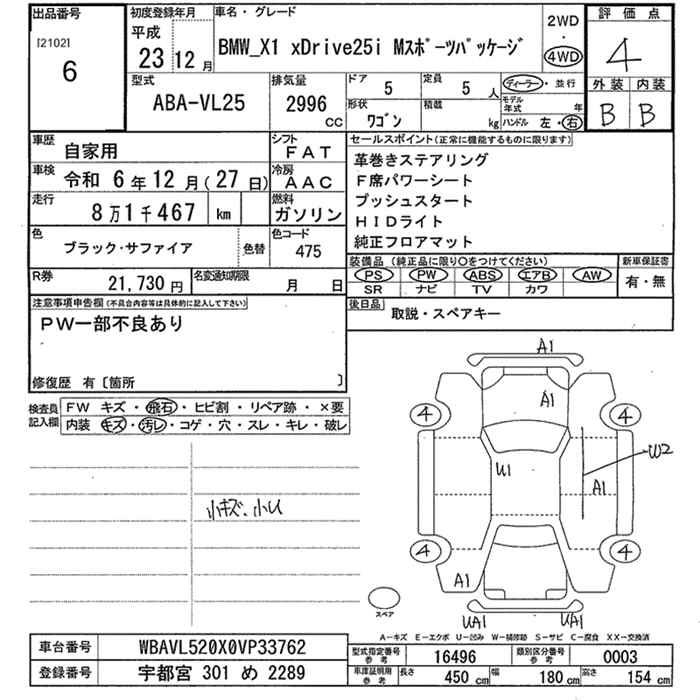 出品番号
[2102]
6
初度登録年月
平成
23 12月
車名・グレード
BMW_X1 xDrive25i Mスポーツパッケージ
2WD
・
4WD
評価点
4
外装 内装
B B
型式
ABA-VL25
排気量
2996
CC
ドア
5
定員
5 人
形状
ワゴン
積載
kg
ディーラー・並行
モデル年式 年
ハンドル 左・右
車歴
自家用
シフト
FAT
車検
令和 6年12月(27日)
冷房
AAC
走行
8万1千467 km
燃料
ガソリン
色
ブラック・サファイア
色替
色コード
475
R券
21,730円
名変通知期限
月 日
セールスポイント(正常に機能するものに限ります)
革巻きステアリング
F席パワーシート
プッシュスタート
HIDライト
純正フロアマット
装備品 (純正品に限り〇をつけてください)
PS PW ABS エアB AW
SR ナビ TV カワ
新車保証書
有・無
後日品
取説・スペアキー
注意事項申告欄 (不具合内容等は具体的に記入して下さい)
PW一部不良あり
修復歴 有〔箇所 〕
検査員記入欄
FW キズ・飛石・ヒビ割・リペア跡・×要
内装 キズ・汚レ・コゲ・穴・スレ・キレ・破レ
小キズ、小U
A1
A1
4 4
W2
U1
A1
4 4
A1
UA1 UA1
スペア
A-キズ E-エクボ U-凹み W-補修跡 S-サビ C-腐食 XX-交換済
車台番号
WBAVL520X0VP33762
登録番号
宇都宮 301 め 2289
型式指定番号
参考
16496
類別区分番号
参考
0003
車庫証明用
参考
長さ 450 cm
幅 180 cm
高さ 154 cm